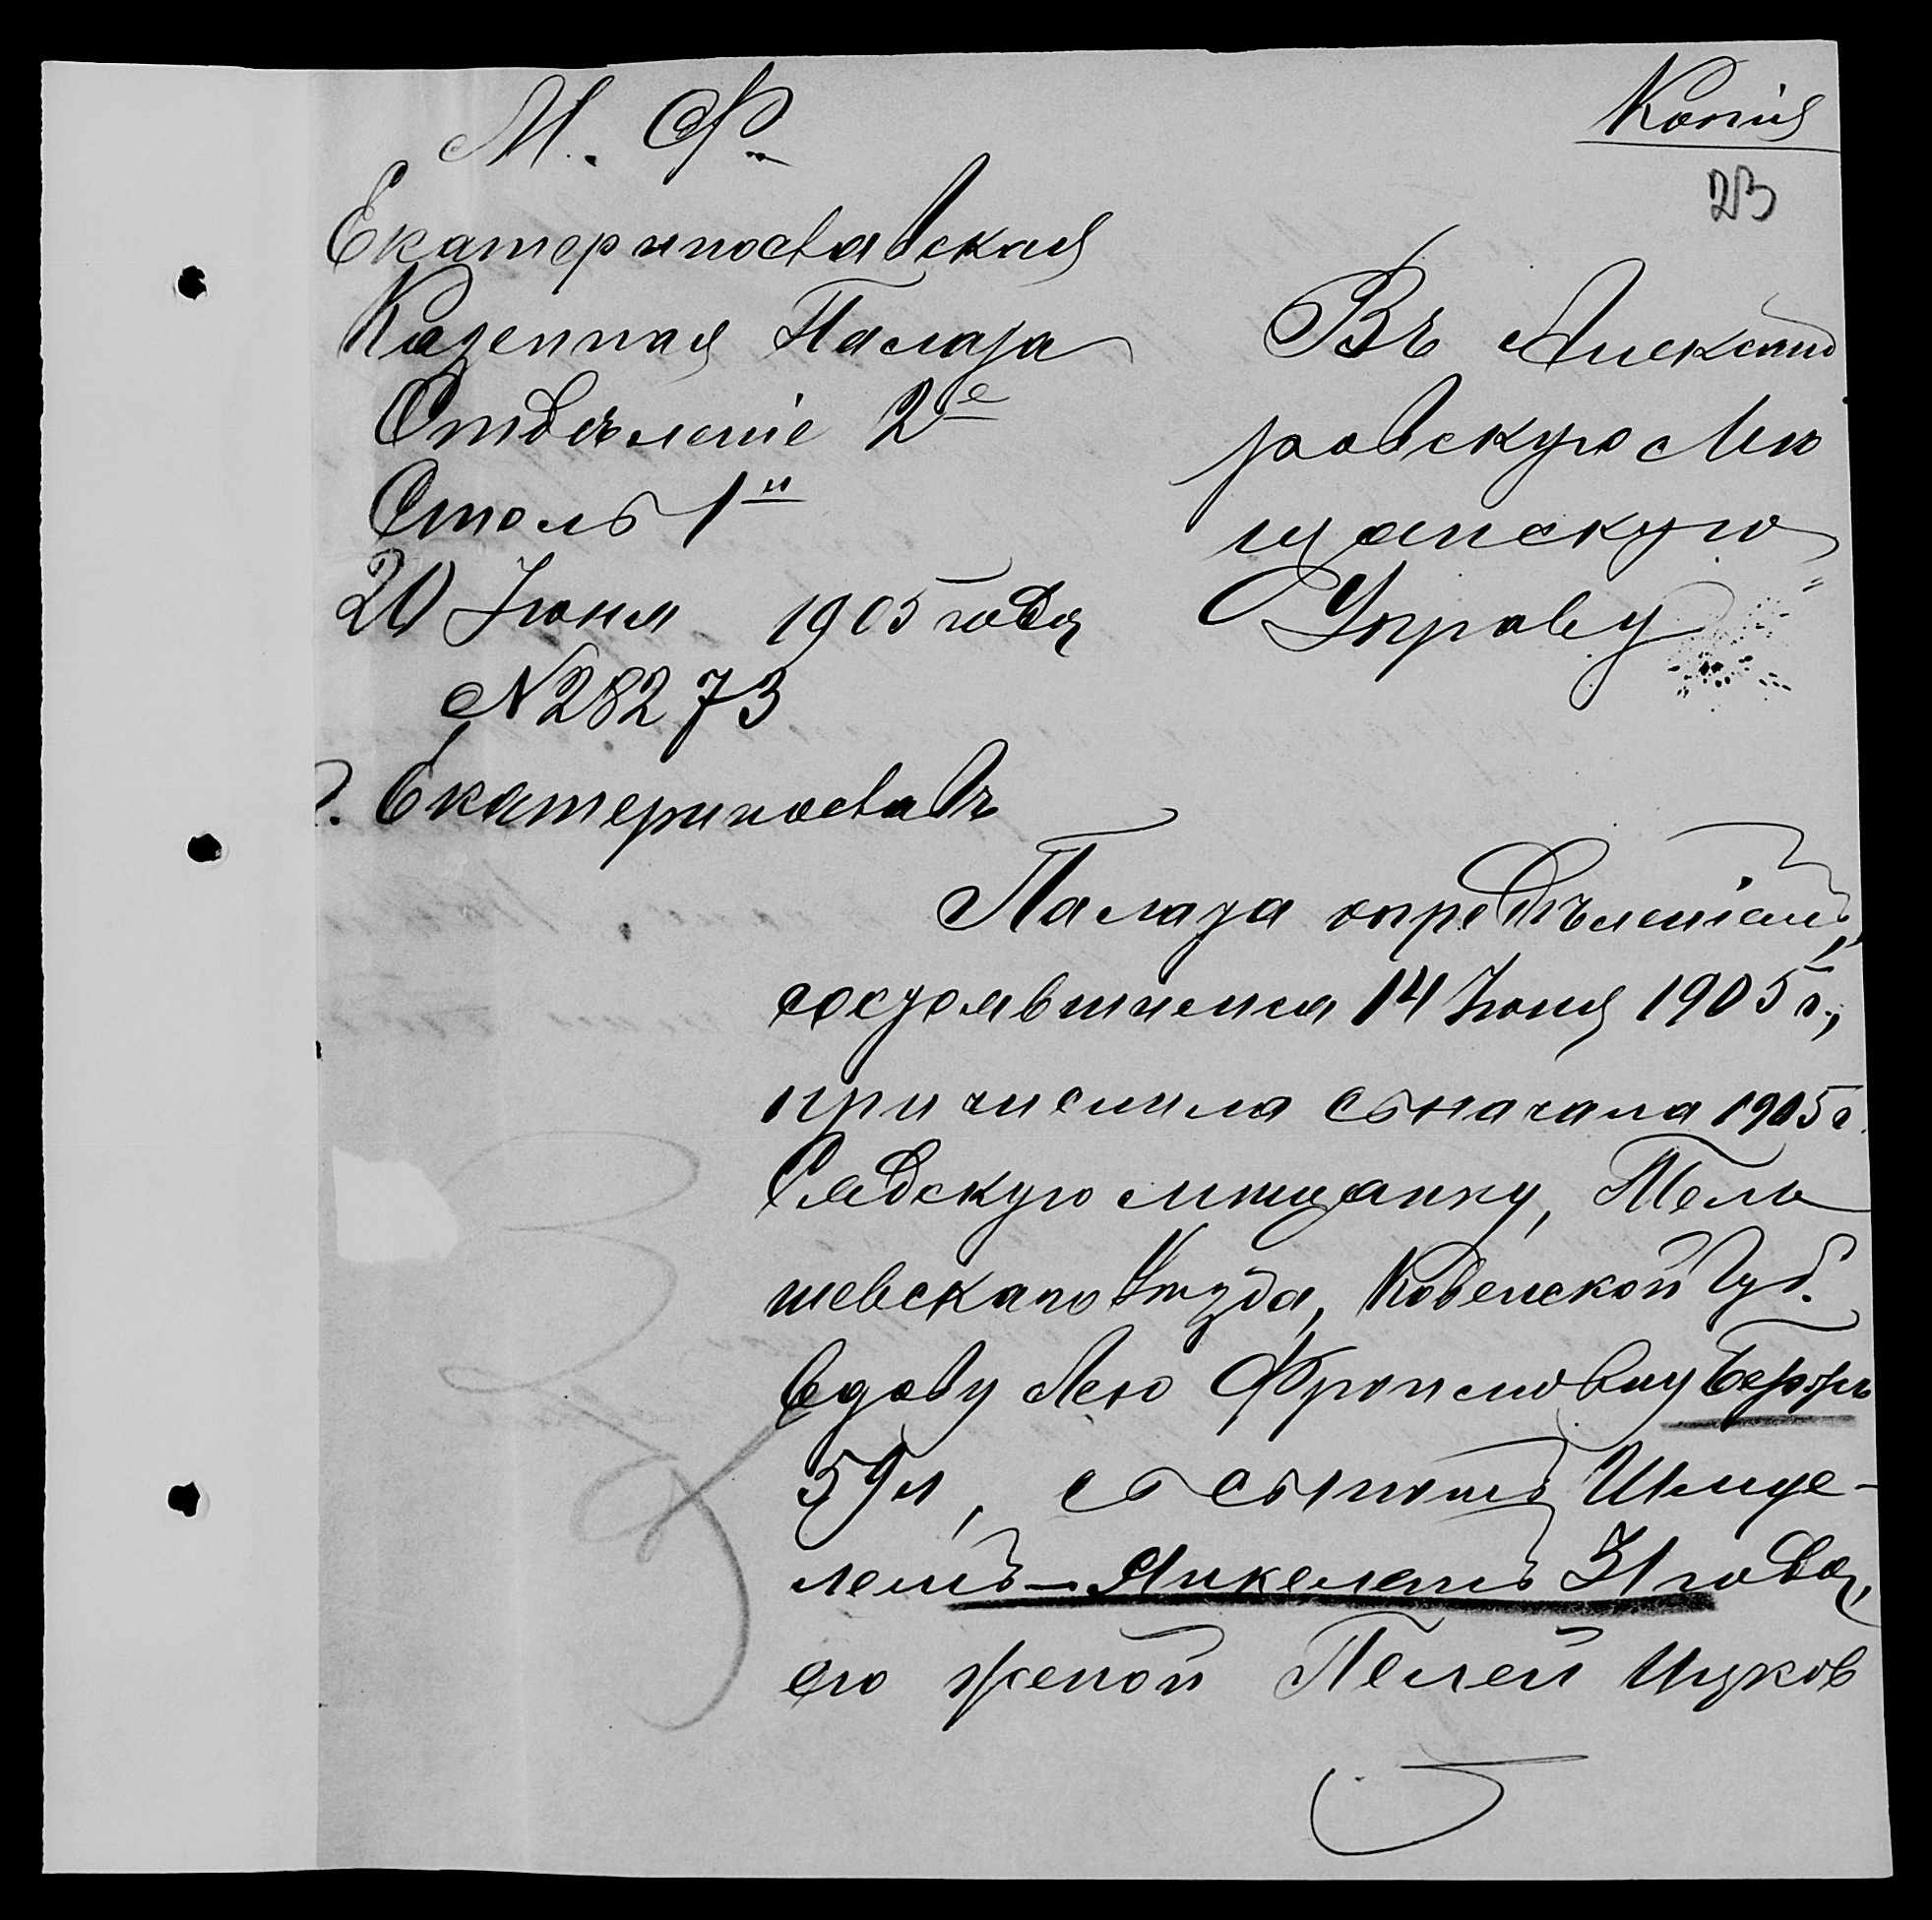 Копія
23
М. Ф.
Екатеринославская
Казенная Палата
Отдѣленіе 2е
Столъ 1й
20 Іюня 1905 года
№ 28273
г. Екатеринославъ
Въ Александ
ровскую Мѣ
щанскую
Управу
Палата опредѣленіемъ,
состоявшимся 14 Іюня 1905 г.,
причислила съ начала 1905 г.
Сядскую мѣщанку, Тель
шевскаго Уѣзда, Ковенской Губ.
вдову Лею
59 л, съ сыномъ Шмуе-
лемъ-Янкелемъ 31 года,
его женой Пелей Ицков